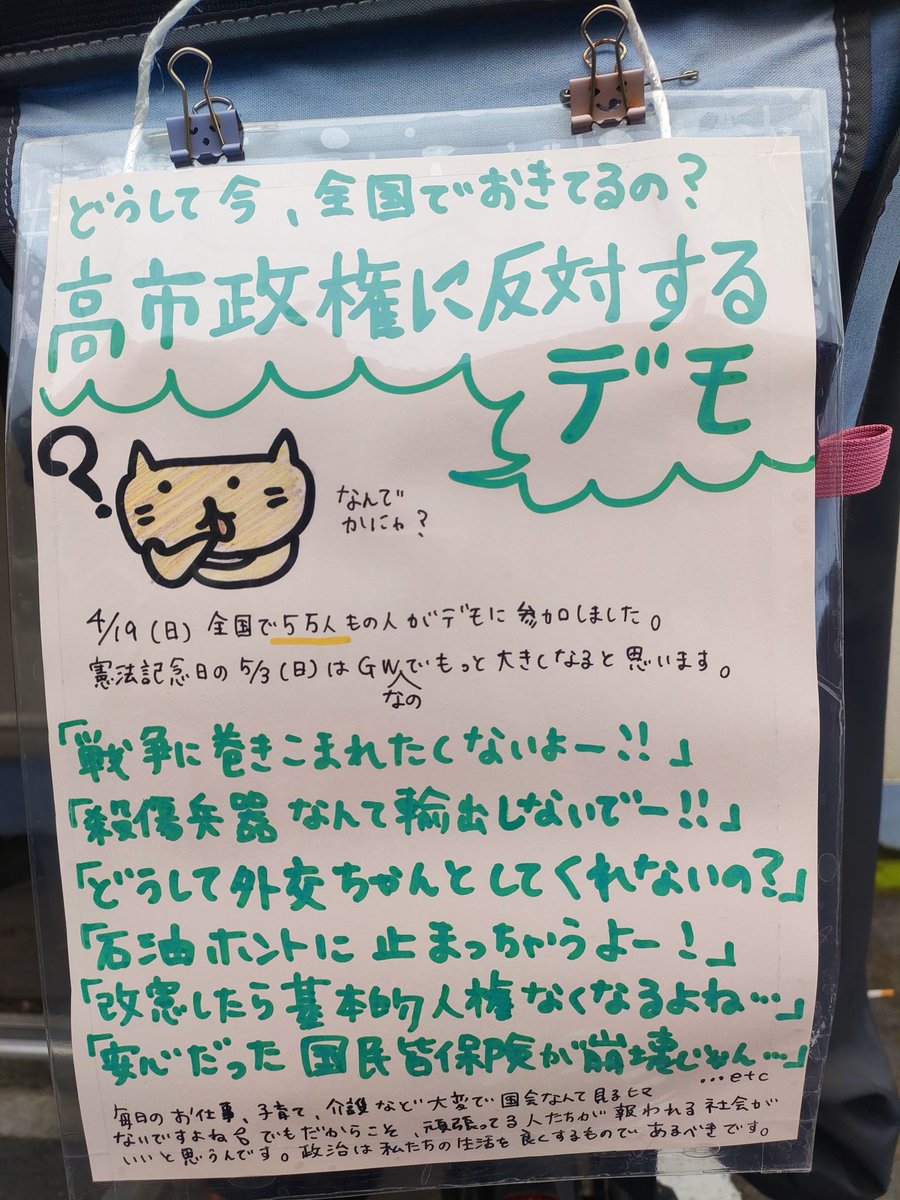 どうして今、全国でおきてるの？
高市政権に反対する
デモ
？
なんで
かにゃ？
4/19（日）全国で5万人もの人がデモに参加しました。
憲法記念日の5/3（日）はGWなのでもっと大きくなると思います。
「戦争に巻きこまれたくないよー!!」
「殺傷兵器なんて輸出しないでー!!」
「どうして外交ちゃんとしてくれないの？」
「石油ホントに止まっちゃうよー！」
「改憲したら基本的人権なくなるよね…」
「安心だった国民皆保険が崩壊じゃん…」
…etc
毎日のお仕事、子育て、介護など大変で国会なんて見るヒマ
ないですよね でもだからこそ、頑張ってる人たちが報われる社会が
いいと思うんです。政治は私たちの生活を良くするものであるべきです。